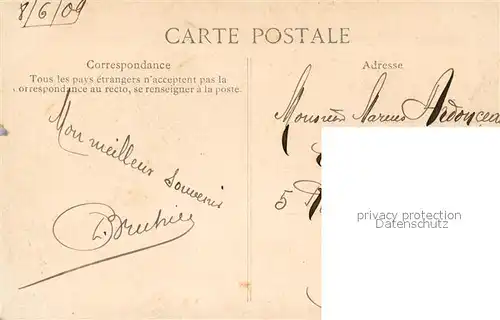 8/6/09
CARTE POSTALE
Correspondance
Tous les pays étrangers n'acceptent pas la
correspondance au recto, se renseigner à la poste.
Adresse
Mon meilleur
Souvenir
Monsieur Marcus
5
privacy protection
Datenschutz